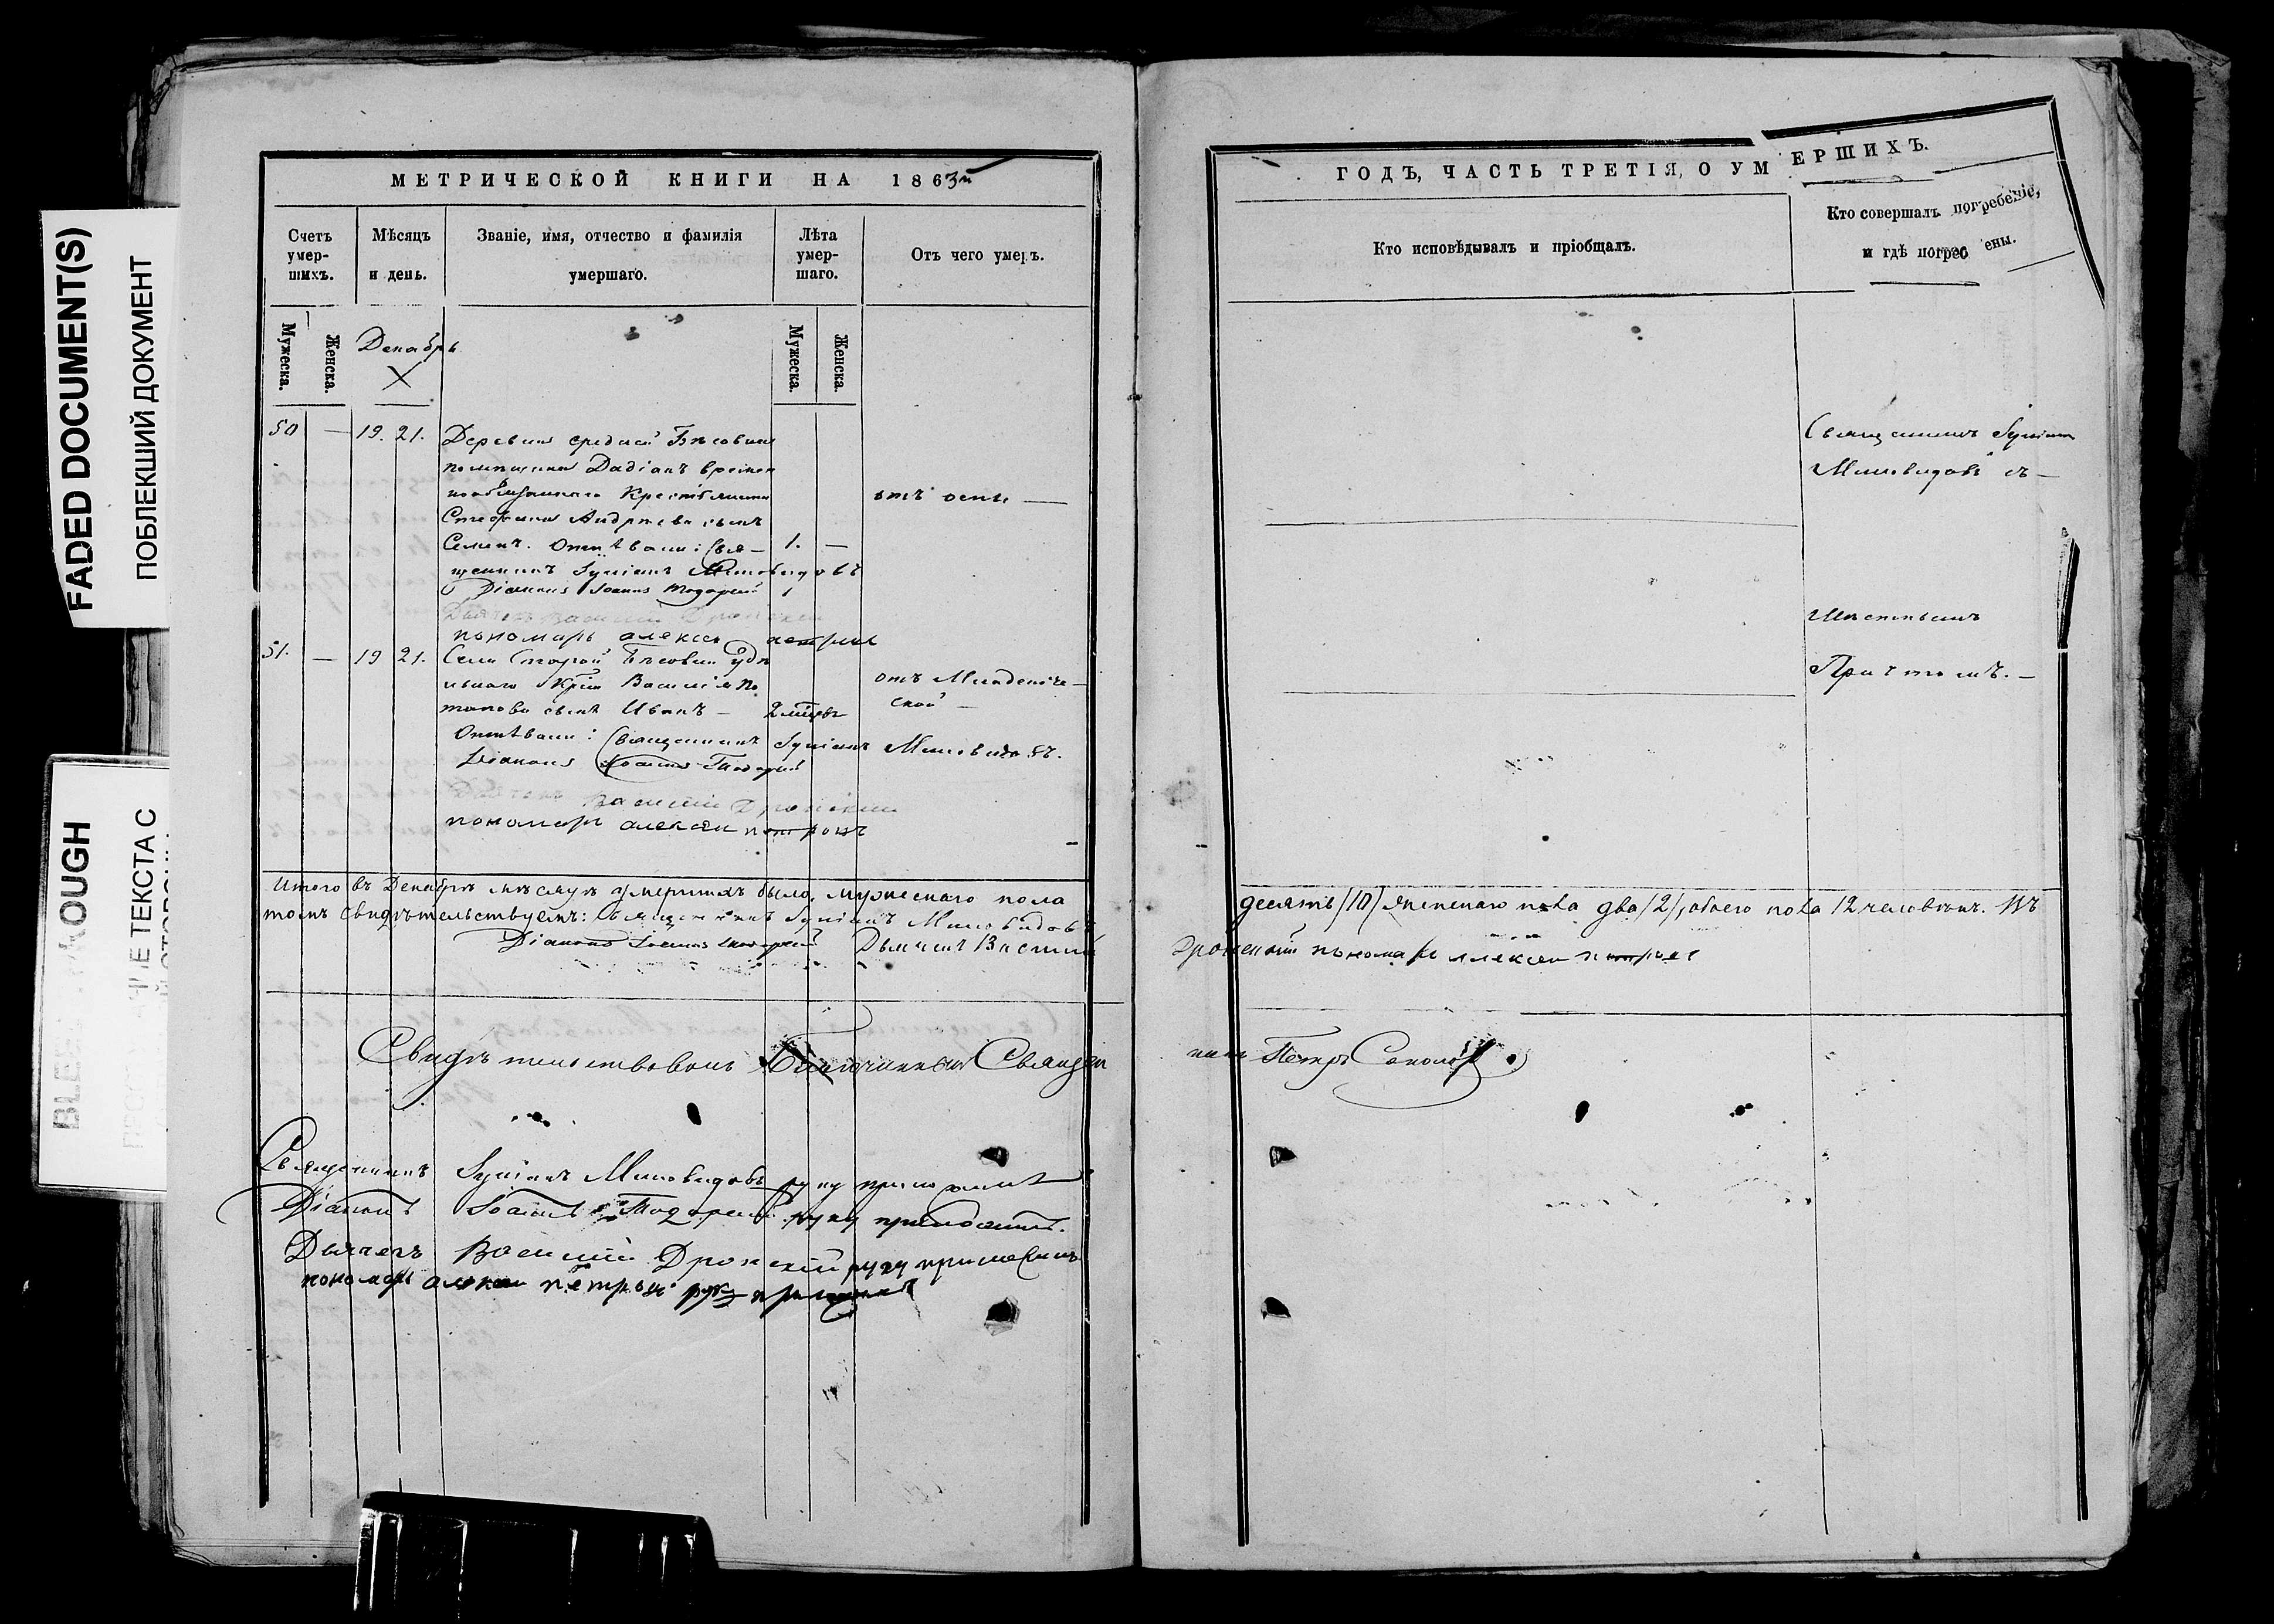 FADED DOCUMENT(S)
ПОБЛЕКШИЙ ДОКУМЕНТ
МЕТРИЧЕСКОЙ КНИГИ НА 1863й
Счетъ умер-шихъ.
Мѣсяцъ и день.
Званіе, имя, отчество и фамилія
умершаго.
Лѣта умер-шаго.
Отъ чего умеръ.
Мужеска.
Женска.
Декабрь
Мужеска.
Женска.
50 — 19. 21. Деревни средней
помѣщика Дадіанъ времен
нообязаннаго Крестьянина отъ оспы —
Стефана Андреева сынъ
Семенъ. Отпѣвали: Свя— 1. —
щенникъ Миловидовъ
Діаконъ Іоаннъ
Дьячекъ Василій
пономарь алексѣй петровъ
51. — 19 21. Села Старой удѣ
льнаго Кр–на Василія По отъ Младенче—
тапова сынъ Иванъ — 2 мѣсцвъ ской —
Отпѣвали: Священникъ Миловидовъ.
Діаконъ Іоаннъ
Дьячекъ Василій
пономарь алексѣй петровъ
Итого въ Декабрѣ мѣсяцѣ умершихъ было, мужескаго пола
томъ свидѣтельствуемъ: Священникъ Миловидовъ
Діаконъ Іоаннъ Дьячекъ Василій
Свидѣтельствовалъ Благочинный Священ
Священникъ Миловидовъ руку приложилъ
Діаконъ Іоаннъ руку приложилъ.
Дьячекъ Василій руку приложилъ
пономарь алексѣй петровъ руку приложилъ
ГОДЪ, ЧАСТЬ ТРЕТІЯ, О УМЕРШИХЪ.
Кто исповѣдывалъ и пріобщалъ.
Кто совершалъ погребеніе,
и гдѣ погребены.
Священникъ
Миловидовъ съ—
Мѣстнымъ
Причтомъ.—
десять /10/ женскаго пола два /2/, обоего пола 12 человѣкъ. Въ
пономарь алексѣй петровъ
никъ Петръ Соколовъ